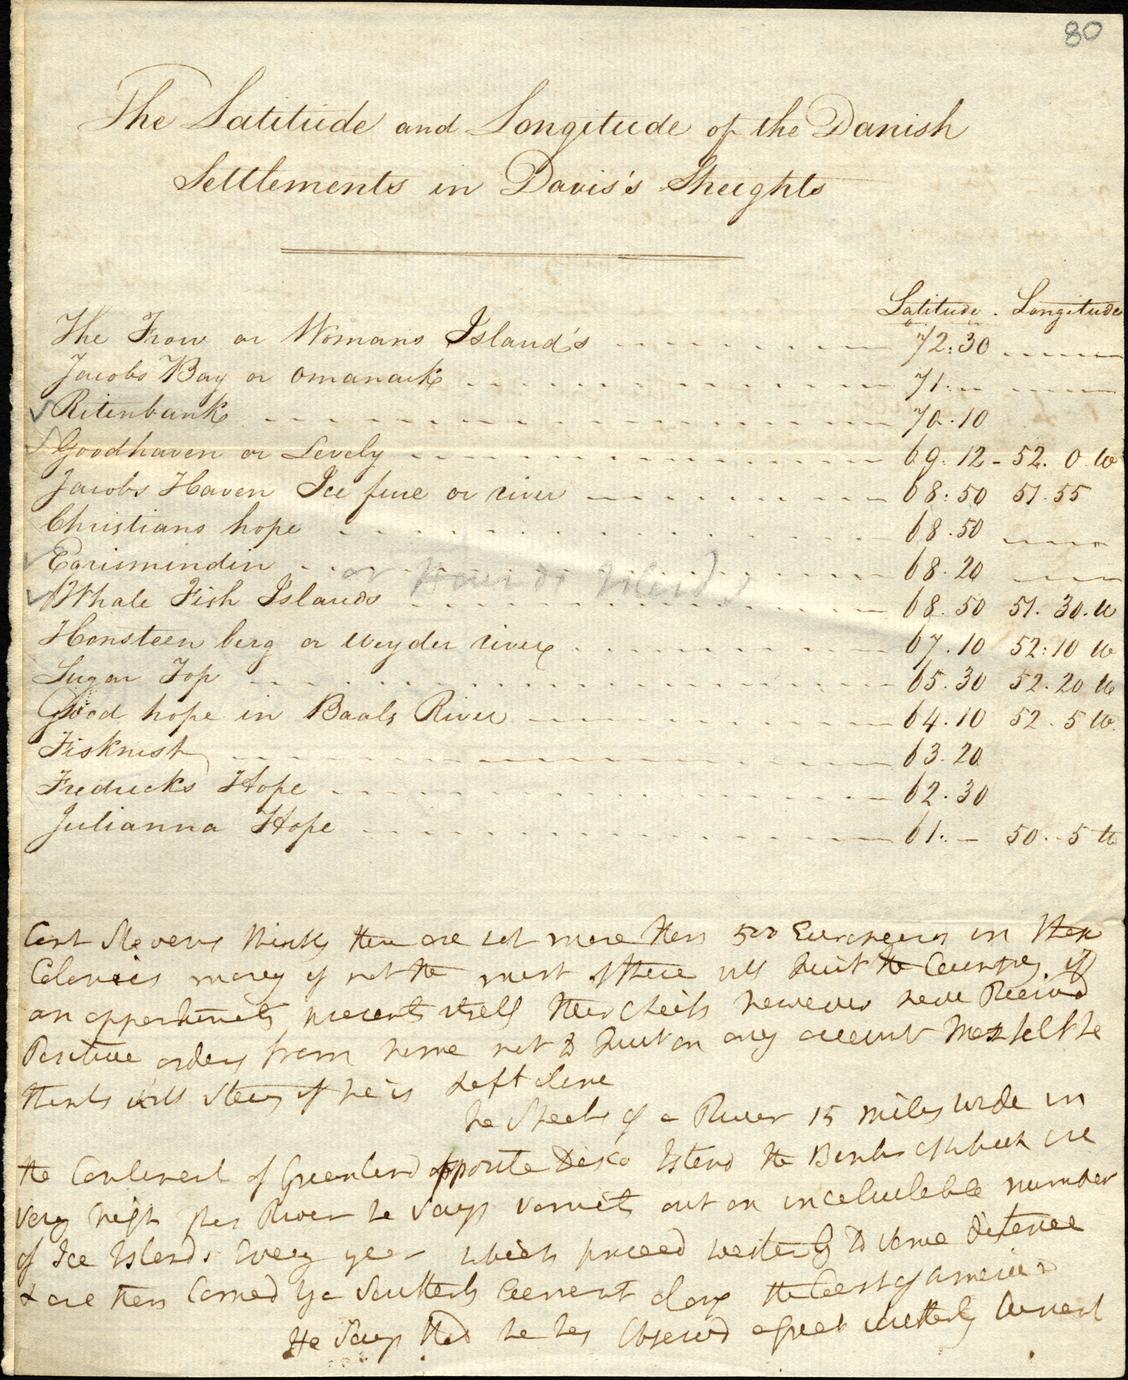 80
The Latitude and Longitude of the Danish
Settlements in Davis's Streights
Latitude. Longitude
The Frow or Womans Island's 72:30
Jacobs Bay or Omanack 71.
Ritenbank 70.10
Goodhaven or Levely 69.12 - 52. 0 W
Jacobs Haven Ice or river 68:50 51.55
Christians hope 68.50
Egrismindin 68.20
or Islands
Whale Fish Islands 68.50 51.30.W
Honsteen berg or Wyder river 67.10 52:10 W
Sugar Top 65.30 52.20 W
Good hope in Baals River 64.10 52.5 W.
Fisknest 63.20
Fredricks Hope 62.30
Julianna Hope 61. - 50..5 W
Capt Stevens thinks there are not more then 500 Europeans in these
Colonies many if not the most of these will Quit the Country if
an oppertunity presents itself their cheifs however have Receivd
Positive orders from home not to Quit on any account he
thinks will Stay if he is Left alone
he Speaks of a River 15 miles wide in
the Continent of Greenland opposite Disco Island the Banks of which are
very high this River he says vomits out an incalculable number
of Ice Islands Every year which proceed westerly to some distance
& are then Carried by a Southerly Current along the Coast of America
He Says that he has Observd a great westerly Current